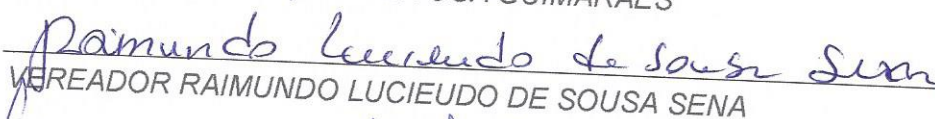 GUIMARÃES
Raimundo Lucieudo de Sousa Sena
VEREADOR RAIMUNDO LUCIEUDO DE SOUSA SENA